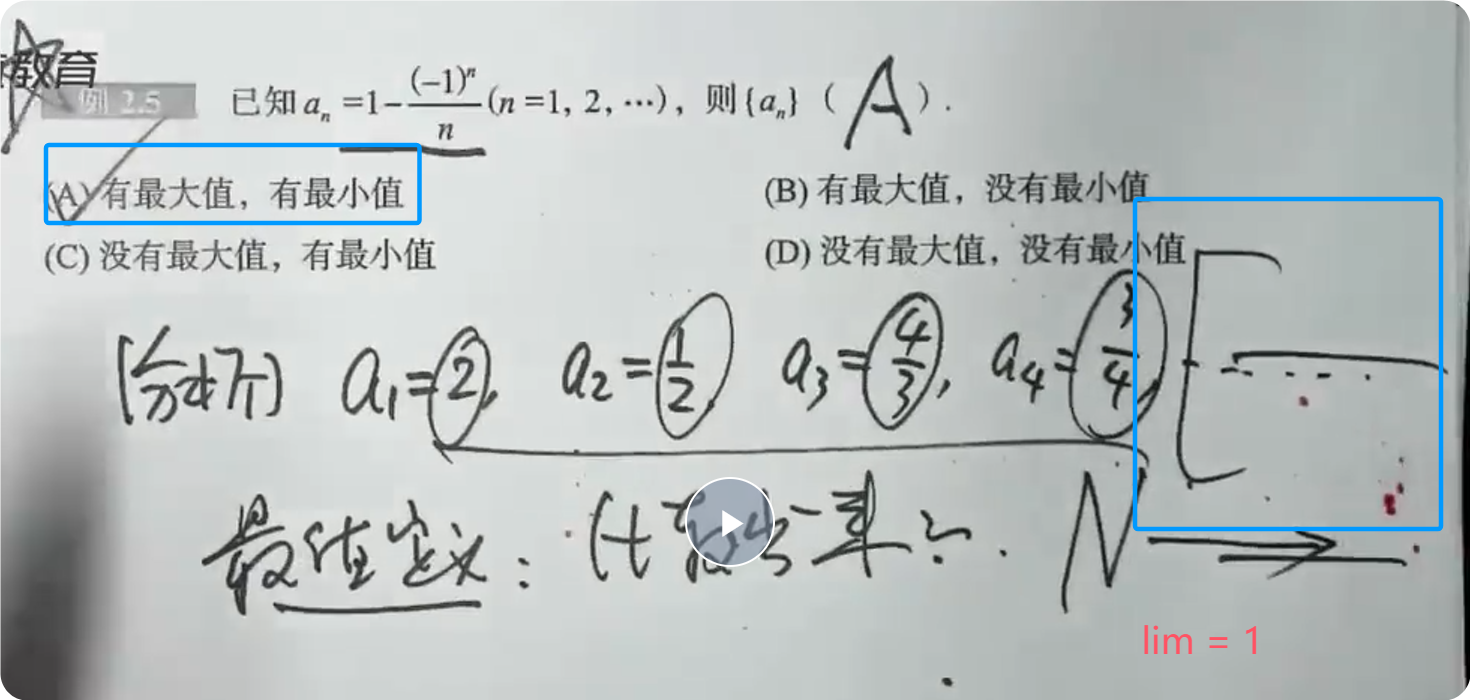 教育
例 2.5 已知 aₙ =1−(−1)ⁿ/n (n =1, 2, ⋯), 则{aₙ} ( A ).
(A) 有最大值，有最小值 (B) 有最大值，没有最小值
(C) 没有最大值，有最小值 (D) 没有最大值，没有最小值
a₁=2, a₂=1/2, a₃=4/3, a₄=3/4,
最值定义: N
lim = 1